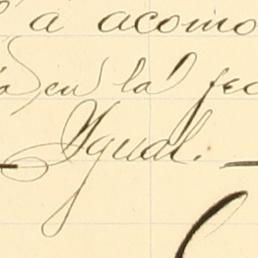 a acomo
en la fec
Igual.